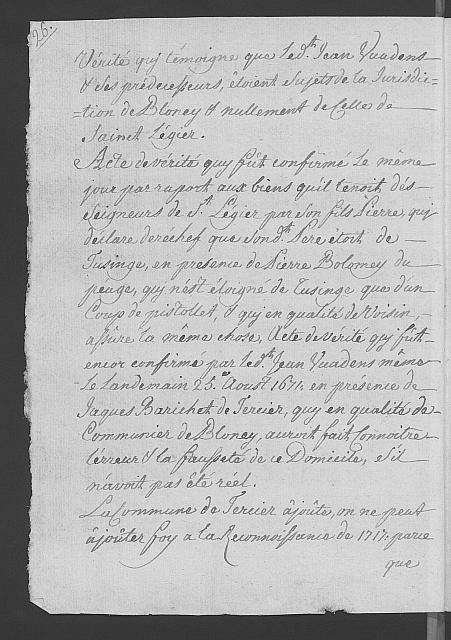 26.
Vérité qui témoigne que led.t Jean Vuadens
& Ses prédecesseurs, étoient Sujets de la Jurisdic=
=tion de Bloney & nullement de Celle de
Sainct Légier.
Acte de vérité quy fût confirmé Le même
jour par raport aux biens qu'il tenoit dés
Seigneurs de S.t Légier par Son fils Pierre, qui
déclare derêchef que Sond.t Pere étoit de
Tusinge, en presence de Pierre Bolomey du
peage, quy n'est éloigné de Tusinge que d'un
Coup de pistollet, & qui en qualité de Voisin,
assûre la même chose, Acte de vérité qui fût
encor confirmé par Led.t Jean Vuadens même
Le Landemain 25.e Aoust 1671. en presence de
Jaques Barichet de Tercier, quy en qualité de
Communier de Bloney, auroit fait Connoitre
l'érreur & la fausseté de ce Domicile, s'il
n'avoit pas été réel.
La Commune de Tercier âjoûte, on ne peut
âjoûter foy a la Reconnoissance de 1717. parce
que